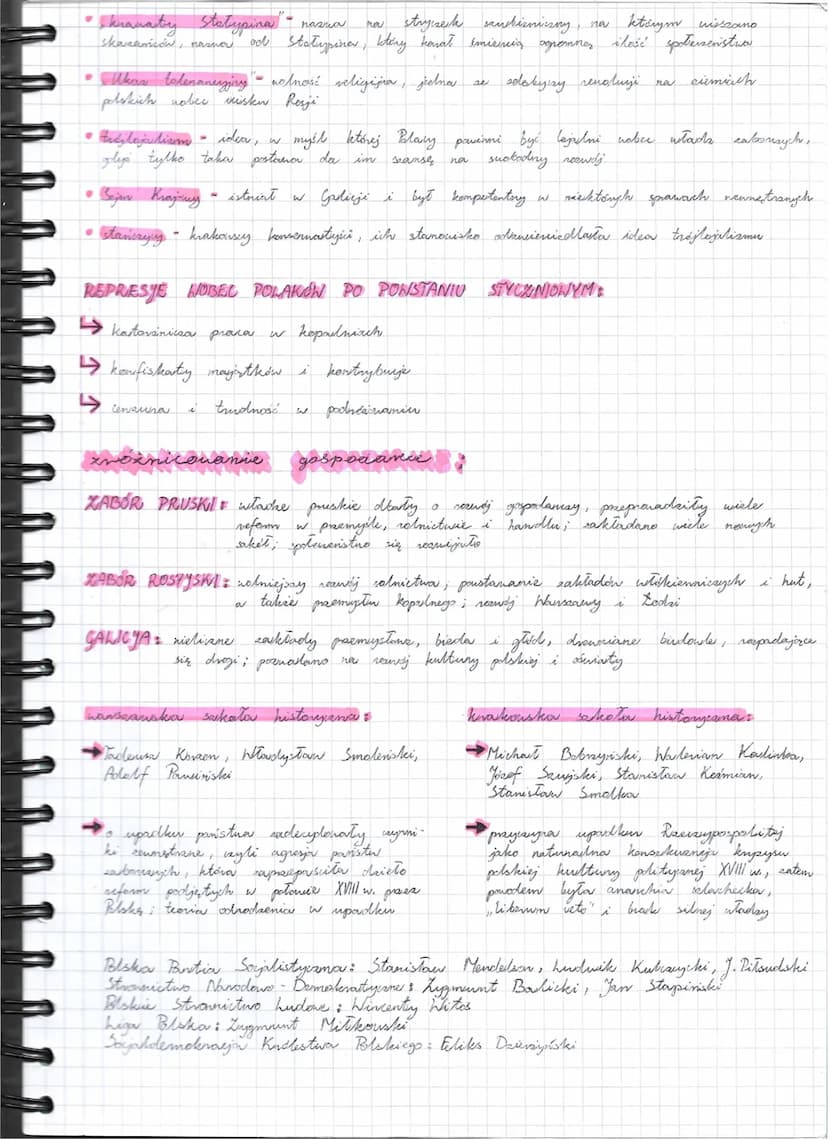 • „krawaty Stołypina" - nazwa na stryczek szubieniczny, na którym wieszano
skazańców, nazwa od Stołypina, który karał śmiercią ogromną ilość społeczeństwa
• „Ukaz tolerancyjny" - wolność religijna, jedna ze zdobyczy rewolucji na ziemiach
polskich wobec ucisku Rosji
• trójlojalizm - idea, w myśl której Polacy powinni być lojalni wobec władz zaborczych,
gdyż tylko taka postawa da im szansę na swobodny rozwój
• Sejm Krajowy - istniał w Galicji i był kompetentny w niektórych sprawach wewnętrznych
• stańczycy - krakowscy konserwatyści, ich stanowisko odzwierciedlała idea trójlojalizmu
REPRESJE WOBEC POLAKÓW PO POWSTANIU STYCZNIOWYM:
↳ katorżnicza praca w kopalniach
↳ konfiskaty majątków i kontrybucje
↳ cenzura i trudność w podróżowaniu
zróżnicowanie gospodarcze:
ZABÓR PRUSKI: władze pruskie dbały o rozwój gospodarczy, przeprowadziły wiele
reform w przemyśle, rolnictwie i handlu; zakładano wiele nowych
szkół; społeczeństwo się rozwijało
ZABÓR ROSYJSKI: wolniejszy rozwój rolnictwa; powstawanie zakładów włókienniczych i hut,
a także przemysłu kopalnego; rozwój Warszawy i Łodzi
GALICJA: nieliczne zakłady przemysłowe, bieda i głód, drewniane budowle, rozpadające
się drogi; pozwalano na rozwój kultury polskiej i oświaty
warszawska szkoła historyczna:
→ Tadeusz Korzon, Władysław Smoleński,
Adolf Pawiński
→ o upadku państwa zadecydowały czynni-
ki zewnętrzne, czyli agresja państw
zaborczych, która zaprzepaściła dzieło
reform podjętych w połowie XVIII w. przez
Polskę; teoria odrodzenia w upadku
krakowska szkoła historyczna:
→ Michał Bobrzyński, Walerian Kalinka,
Józef Szujski, Stanisław Koźmian,
Stanisław Smolka
→ przyczyna upadku Rzeczypospolitej
jako naturalna konsekwencja kryzysu
polskiej kultury politycznej XVIII w., zatem
powodem była anarchia szlachecka,
„liberum veto" i brak silnej władzy
Polska Partia Socjalistyczna: Stanisław Mendelson, Ludwik Kulczycki, J. Piłsudski
Stronnictwo Narodowo-Demokratyczne: Zygmunt Balicki, Jan Stapiński
Polskie Stronnictwo Ludowe: Wincenty Witos
Liga Polska: Zygmunt Miłkowski
Socjaldemokracja Królestwa Polskiego: Feliks Dzierżyński